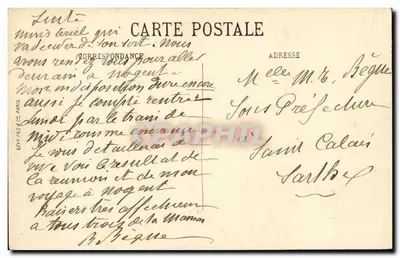 CARTE POSTALE
CORRESPONDANCE
ADRESSE
Suite
qui
va de son sort. Nous
avons rendez vous pour aller
demain à Nogent
disposition dure encore
aussi je compte rentrer
lundi par le train de
midi comme
Je vous détaillerai de
vive voix le résultat de
la réunion et de mon
voyage à Nogent
Baisers très affectueux
a tous trois de la Maman
B. Bègue
Melle M. T. Bègue
Sous Préfecture
Saint Calais
Sarthe